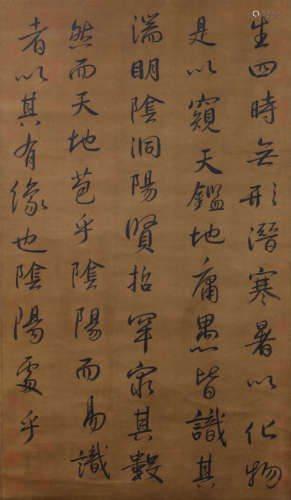 生四時无形潛寒暑以化物
是以窺天鑑地庸愚皆識其
端明陰洞陽賢哲罕窮其數
然而天地苞乎陰陽而易識
者以其有像也陰陽處乎